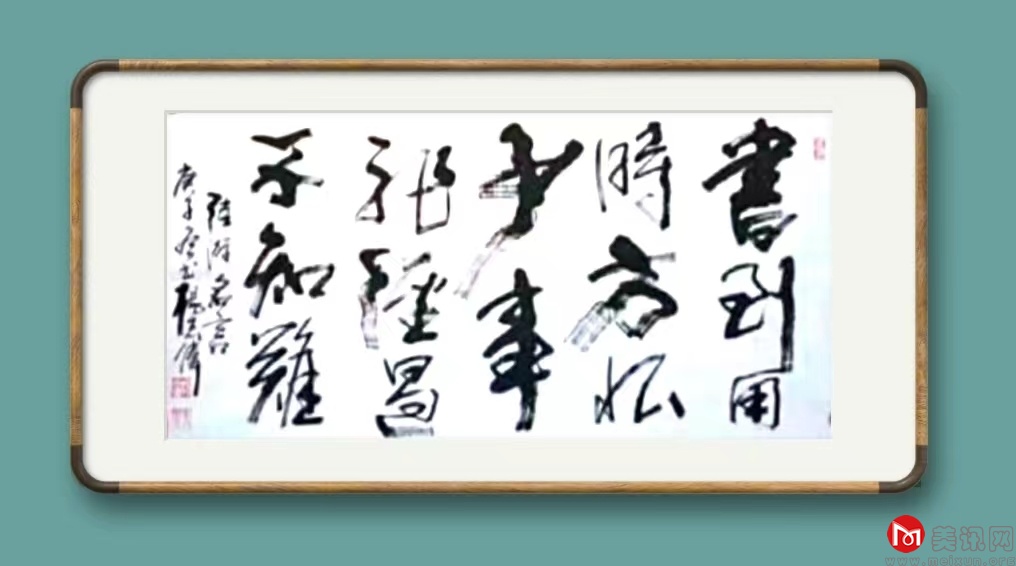 書到用
時方恨
少事
非經過
不知難
陸游名言
庚子书楊偉
美讯网
www.meixun.org